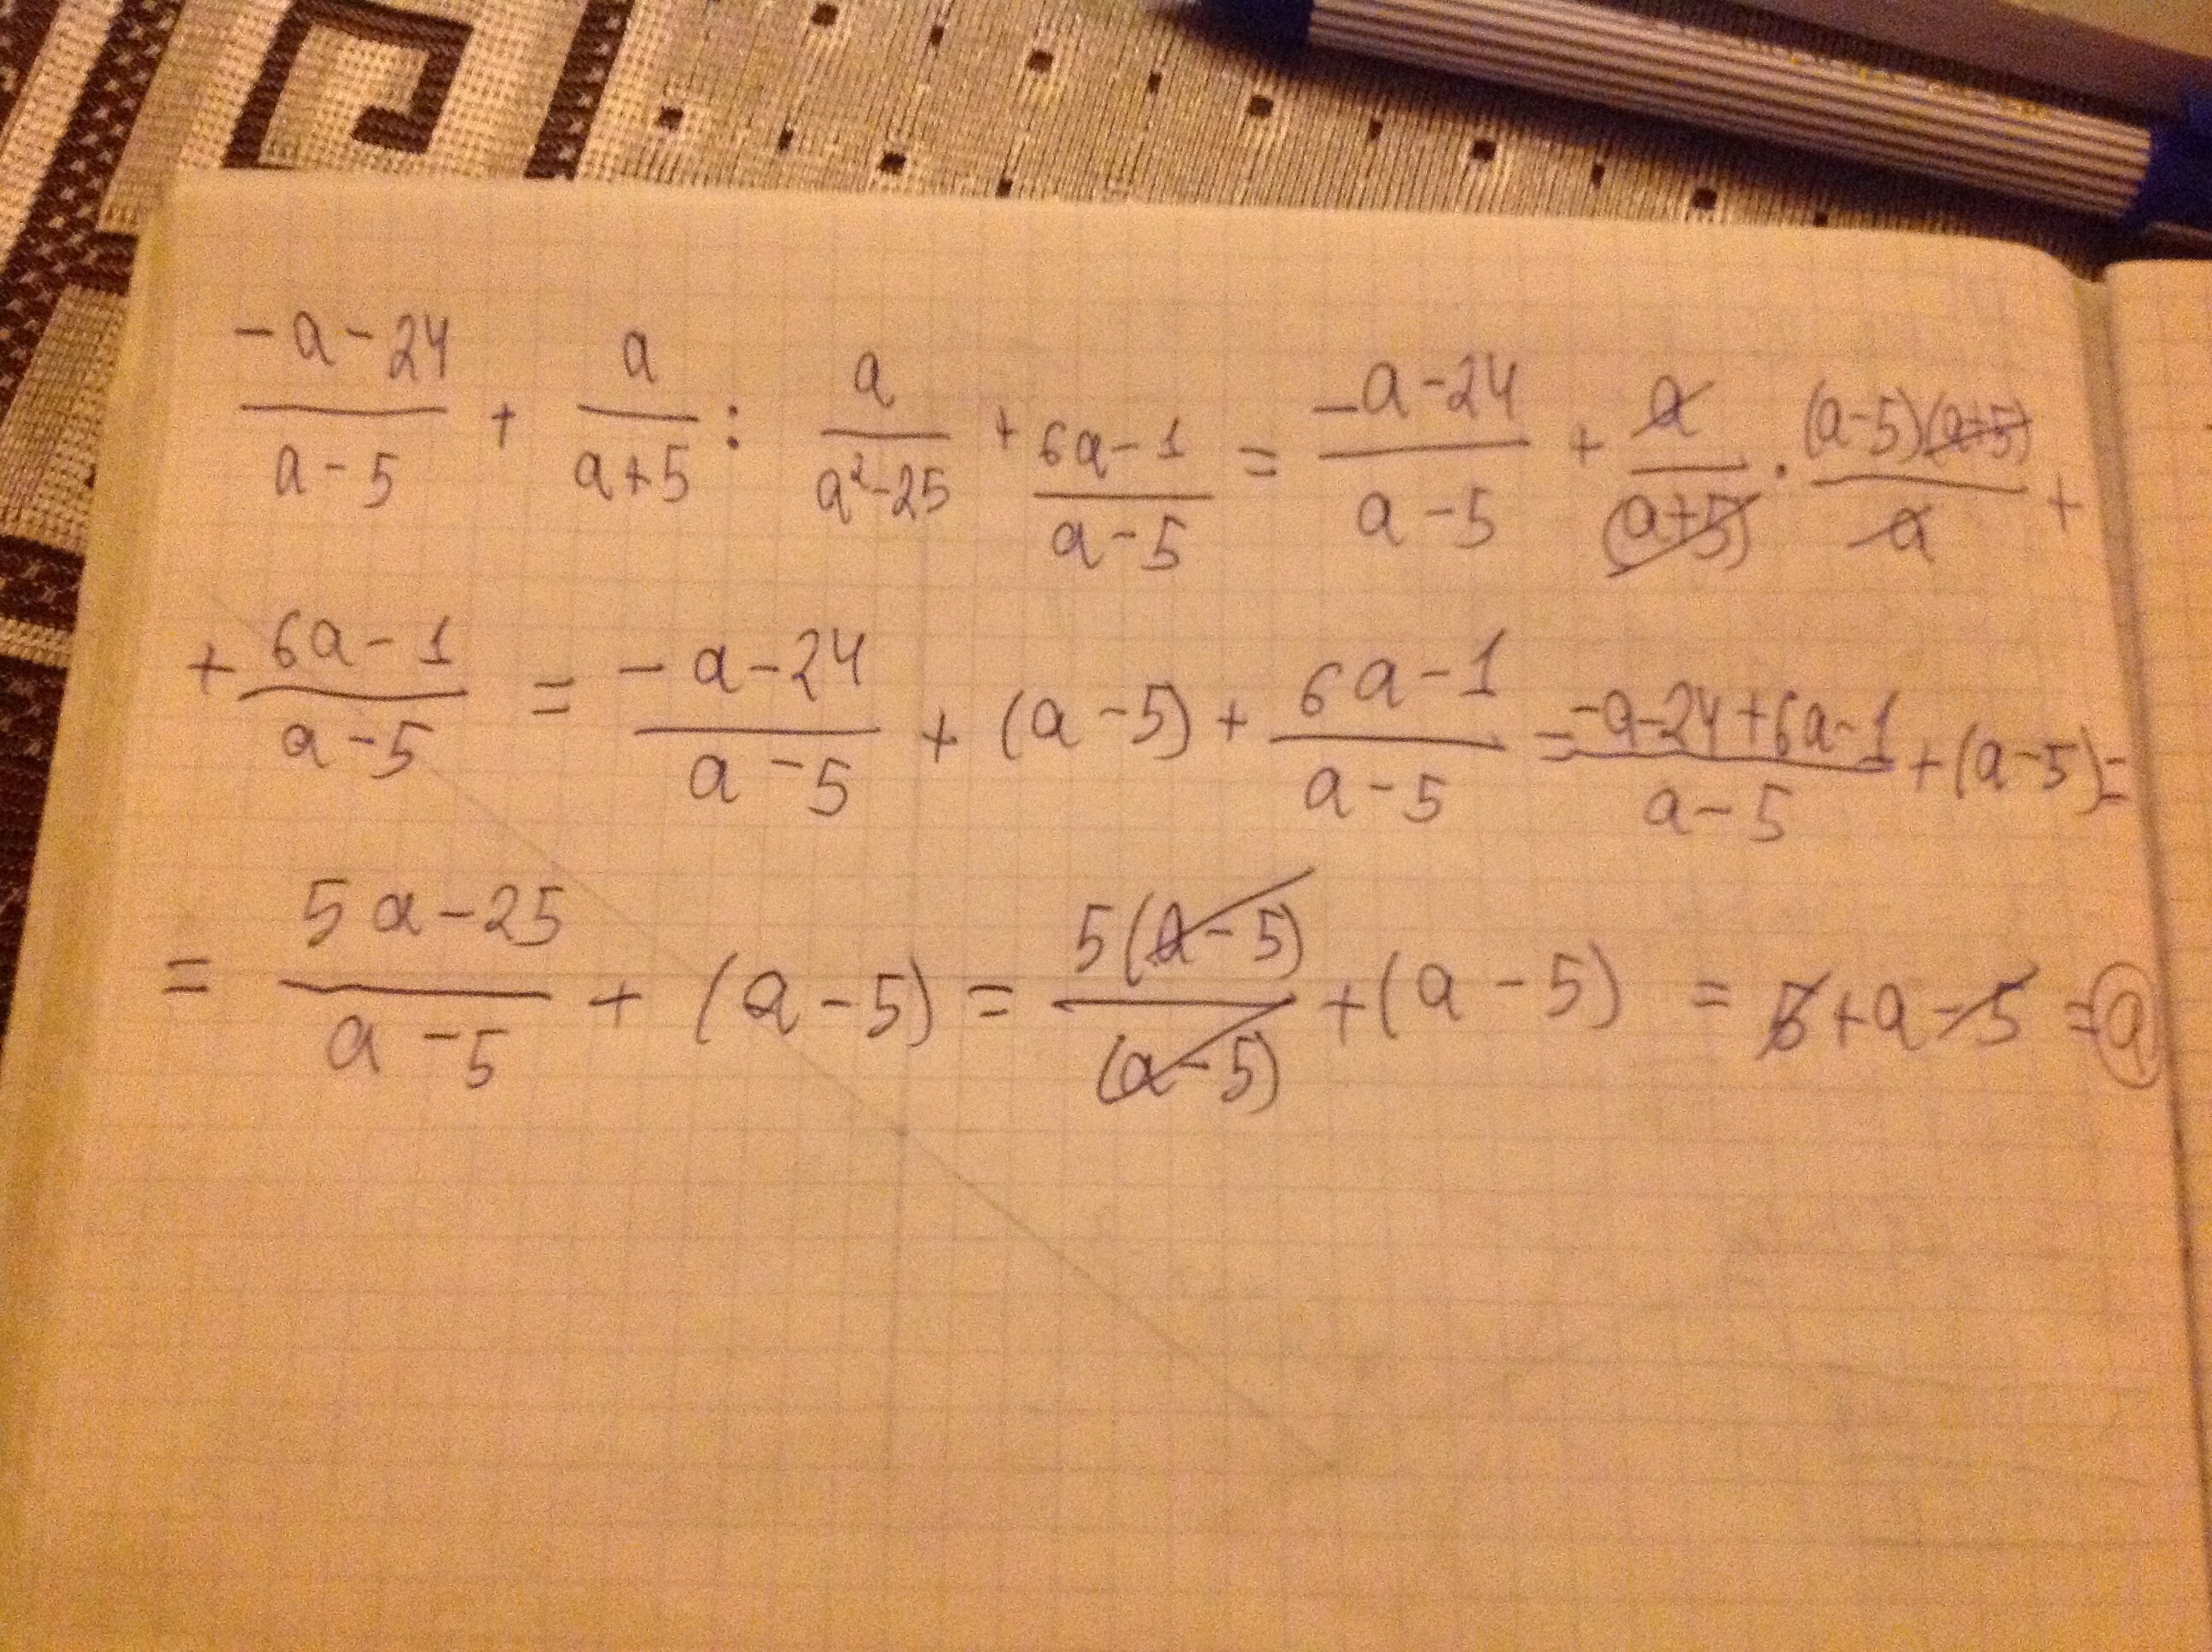 (-a-24)/(a-5) + a/(a+5) : a/(a²-25) + (6a-1)/(a-5) = (-a-24)/(a-5) + a/(a+5) · (a-5)(a+5)/a +
+ (6a-1)/(a-5) = (-a-24)/(a-5) + (a-5) + (6a-1)/(a-5) = (-a-24+6a-1)/(a-5) + (a-5) =
= (5a-25)/(a-5) + (a-5) = 5(a-5)/(a-5) + (a-5) = 5+a-5 = a